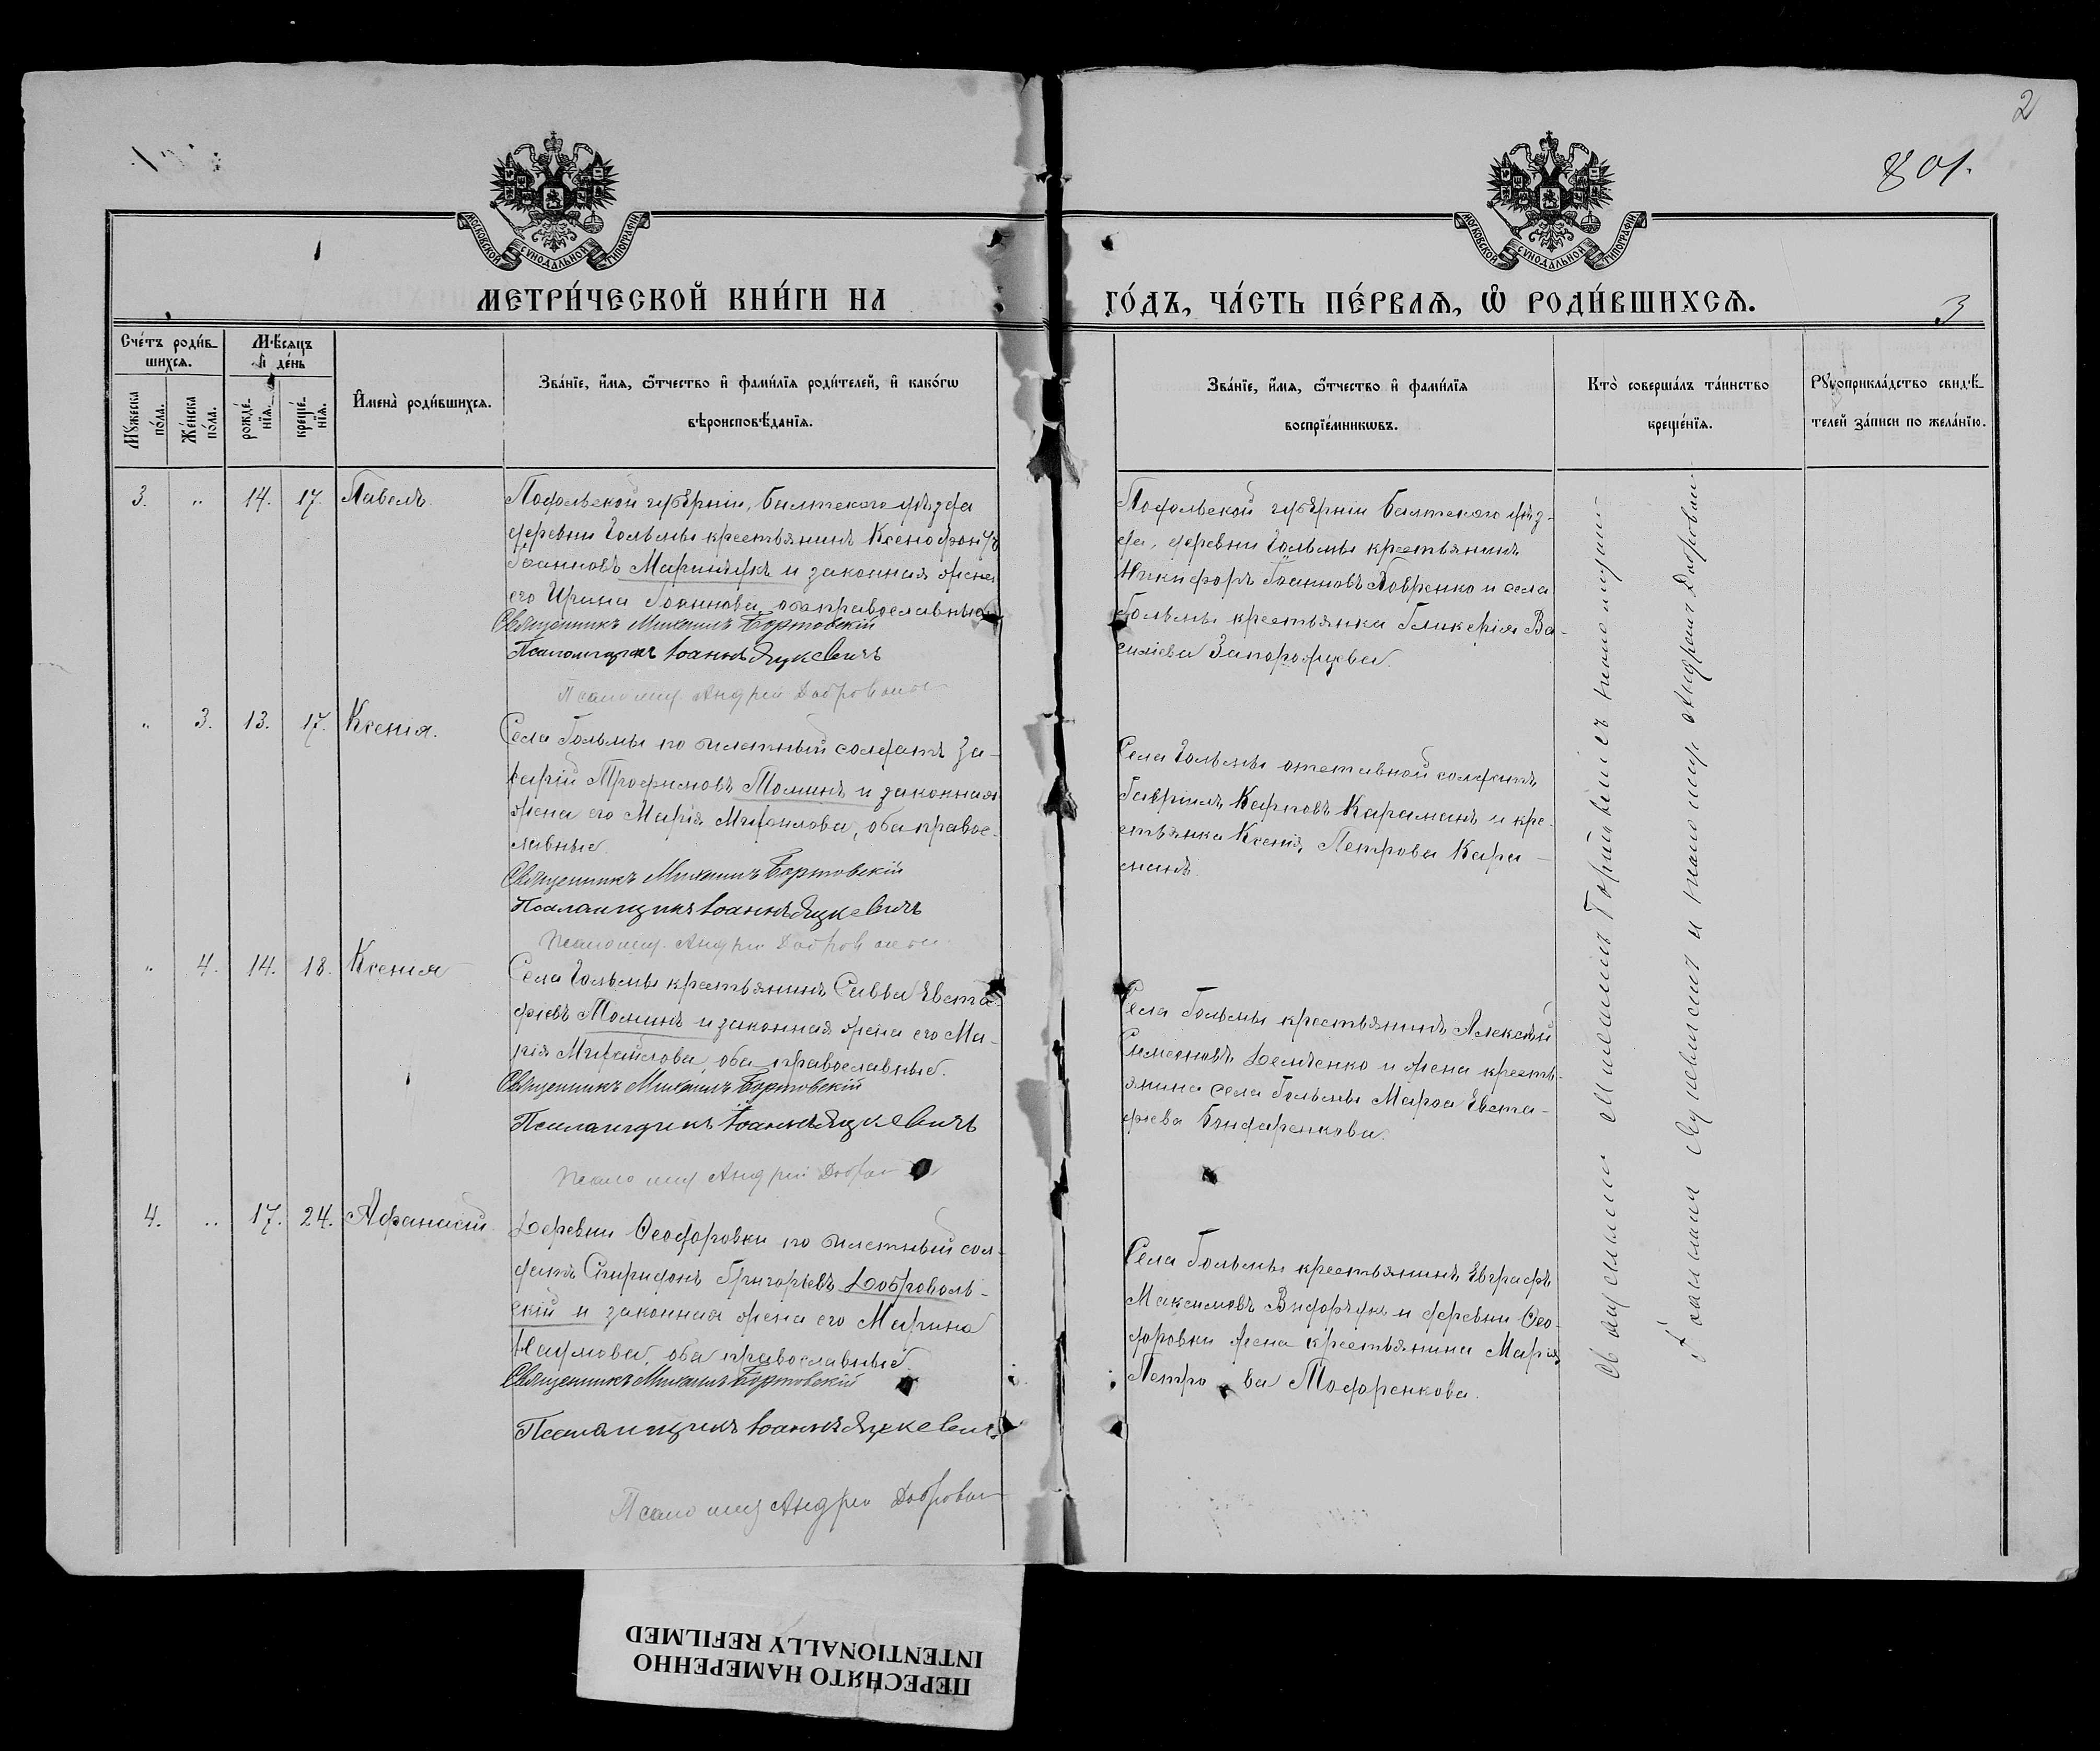 2
801.
МОСКОВСКОЙ СѴНОДАЛЬНОЙ ТИПОГРАФІИ
МОСКОВСКОЙ СѴНОДАЛЬНОЙ ТИПОГРАФІИ
МЕТРИ́ЧЕСКОЙ КНИ́ГИ НА
ГО́ДЪ, ЧА́СТЬ ПЕ́РВАѦ, Ѡ РОДИ́ВШИХСѦ.
3
Сче́тъ роди́в-
шихся.
Мѣ́сяцъ
и де́нь
Му́жеска
по́ла.
Же́нска
по́ла.
рожде́-
нїя.
креще́-
нїя.
И҆мена̀ роди́вшихся.
Зва́нїе, и҆́мя, ѻ҆́тчество и҆ фами́лїя роди́телей, и҆ како́гѡ
вѣроисповѣ́данїя.
Зва́нїе, и҆́мя, ѻ҆́тчество и҆ фами́лїя
воспрїе́мникѡвъ.
Кто̀ соверша́лъ та́инство
креще́нїя.
Рꙋкоприкла́дство свидѣ́-
телей за́писи по жела́нїю.
3. „ 14. 17. Павелъ.
Подольской губерніи, Балтскаго уѣзда
деревни Гольмы крестьянинъ Ксенофонтъ
Іоанновъ Маринчукъ и законная жена
его Ирина Іоаннова, оба православные
Священникъ Михаилъ Бортовскій
Псаломщикъ Іоаннъ Яцкевичъ
Псаломщ. Андрей Доброволь
Подольской губерніи Балтскаго уѣз-
да, деревни Гольмы крестьянинъ
Никифоръ Іоанновъ Ковренко и села
Гольмы крестьянка Гликерія Ва-
силіева Запорожцева.
„ 3. 13. 17. Ксенія.
Села Гольмы по билетный солдатъ За-
харій Трофимовъ Томинъ и законная
жена его Марія Михаилова, оба право-
славные
Священникъ Михаилъ Бортовскій
Псаломщикъ Іоаннъ Яцкевичъ
Псаломщ. Андрей Доброволь
Села Гольмы отставной солдатъ
Гавріилъ Карповъ Караманъ и кре-
стьянка Ксенія Петрова Кара-
манъ.
„ 4. 14. 18. Ксенія
Села Гольмы крестьянинъ Савва Евста-
фіевъ Томинъ и законная жена его Ма-
рія Михайлова, оба православные.
Священникъ Михаилъ Бортовскій
Псаломщикъ Іоаннъ Яцкевичъ
Псаломщ Андрей Добров
Села Гольмы крестьянинъ Алексѣй
Симеоновъ Демченко и жена кресть-
янина села Гольмы Марѳа Евста-
фіева Бондаренкова.
4. „ 17. 24. Афанасій
Деревни Ѳеодоровки по билетный сол-
датъ Спиридонъ Григоріевъ Доброволь-
скій и законная жена его Марина
Наумова, оба православные.
Священникъ Михаилъ Бортовскій
Псаломщикъ Іоаннъ Яцкевичъ
Псаломщ Андрей Доброволь
Села Гольмы крестьянинъ Евграфъ
Максимовъ и деревни Ѳео-
доровки жена крестьянина Марія
Петрова Тодоренкова.
Священникъ Михаилъ Бортовскій съ псаломщикомъ
Іоанномъ Яцкевичемъ и псаломщ. Андреемъ Доброволь
ПЕРЕСНЯТО НАМЕРЕННО
INTENTIONALLY REFILMED